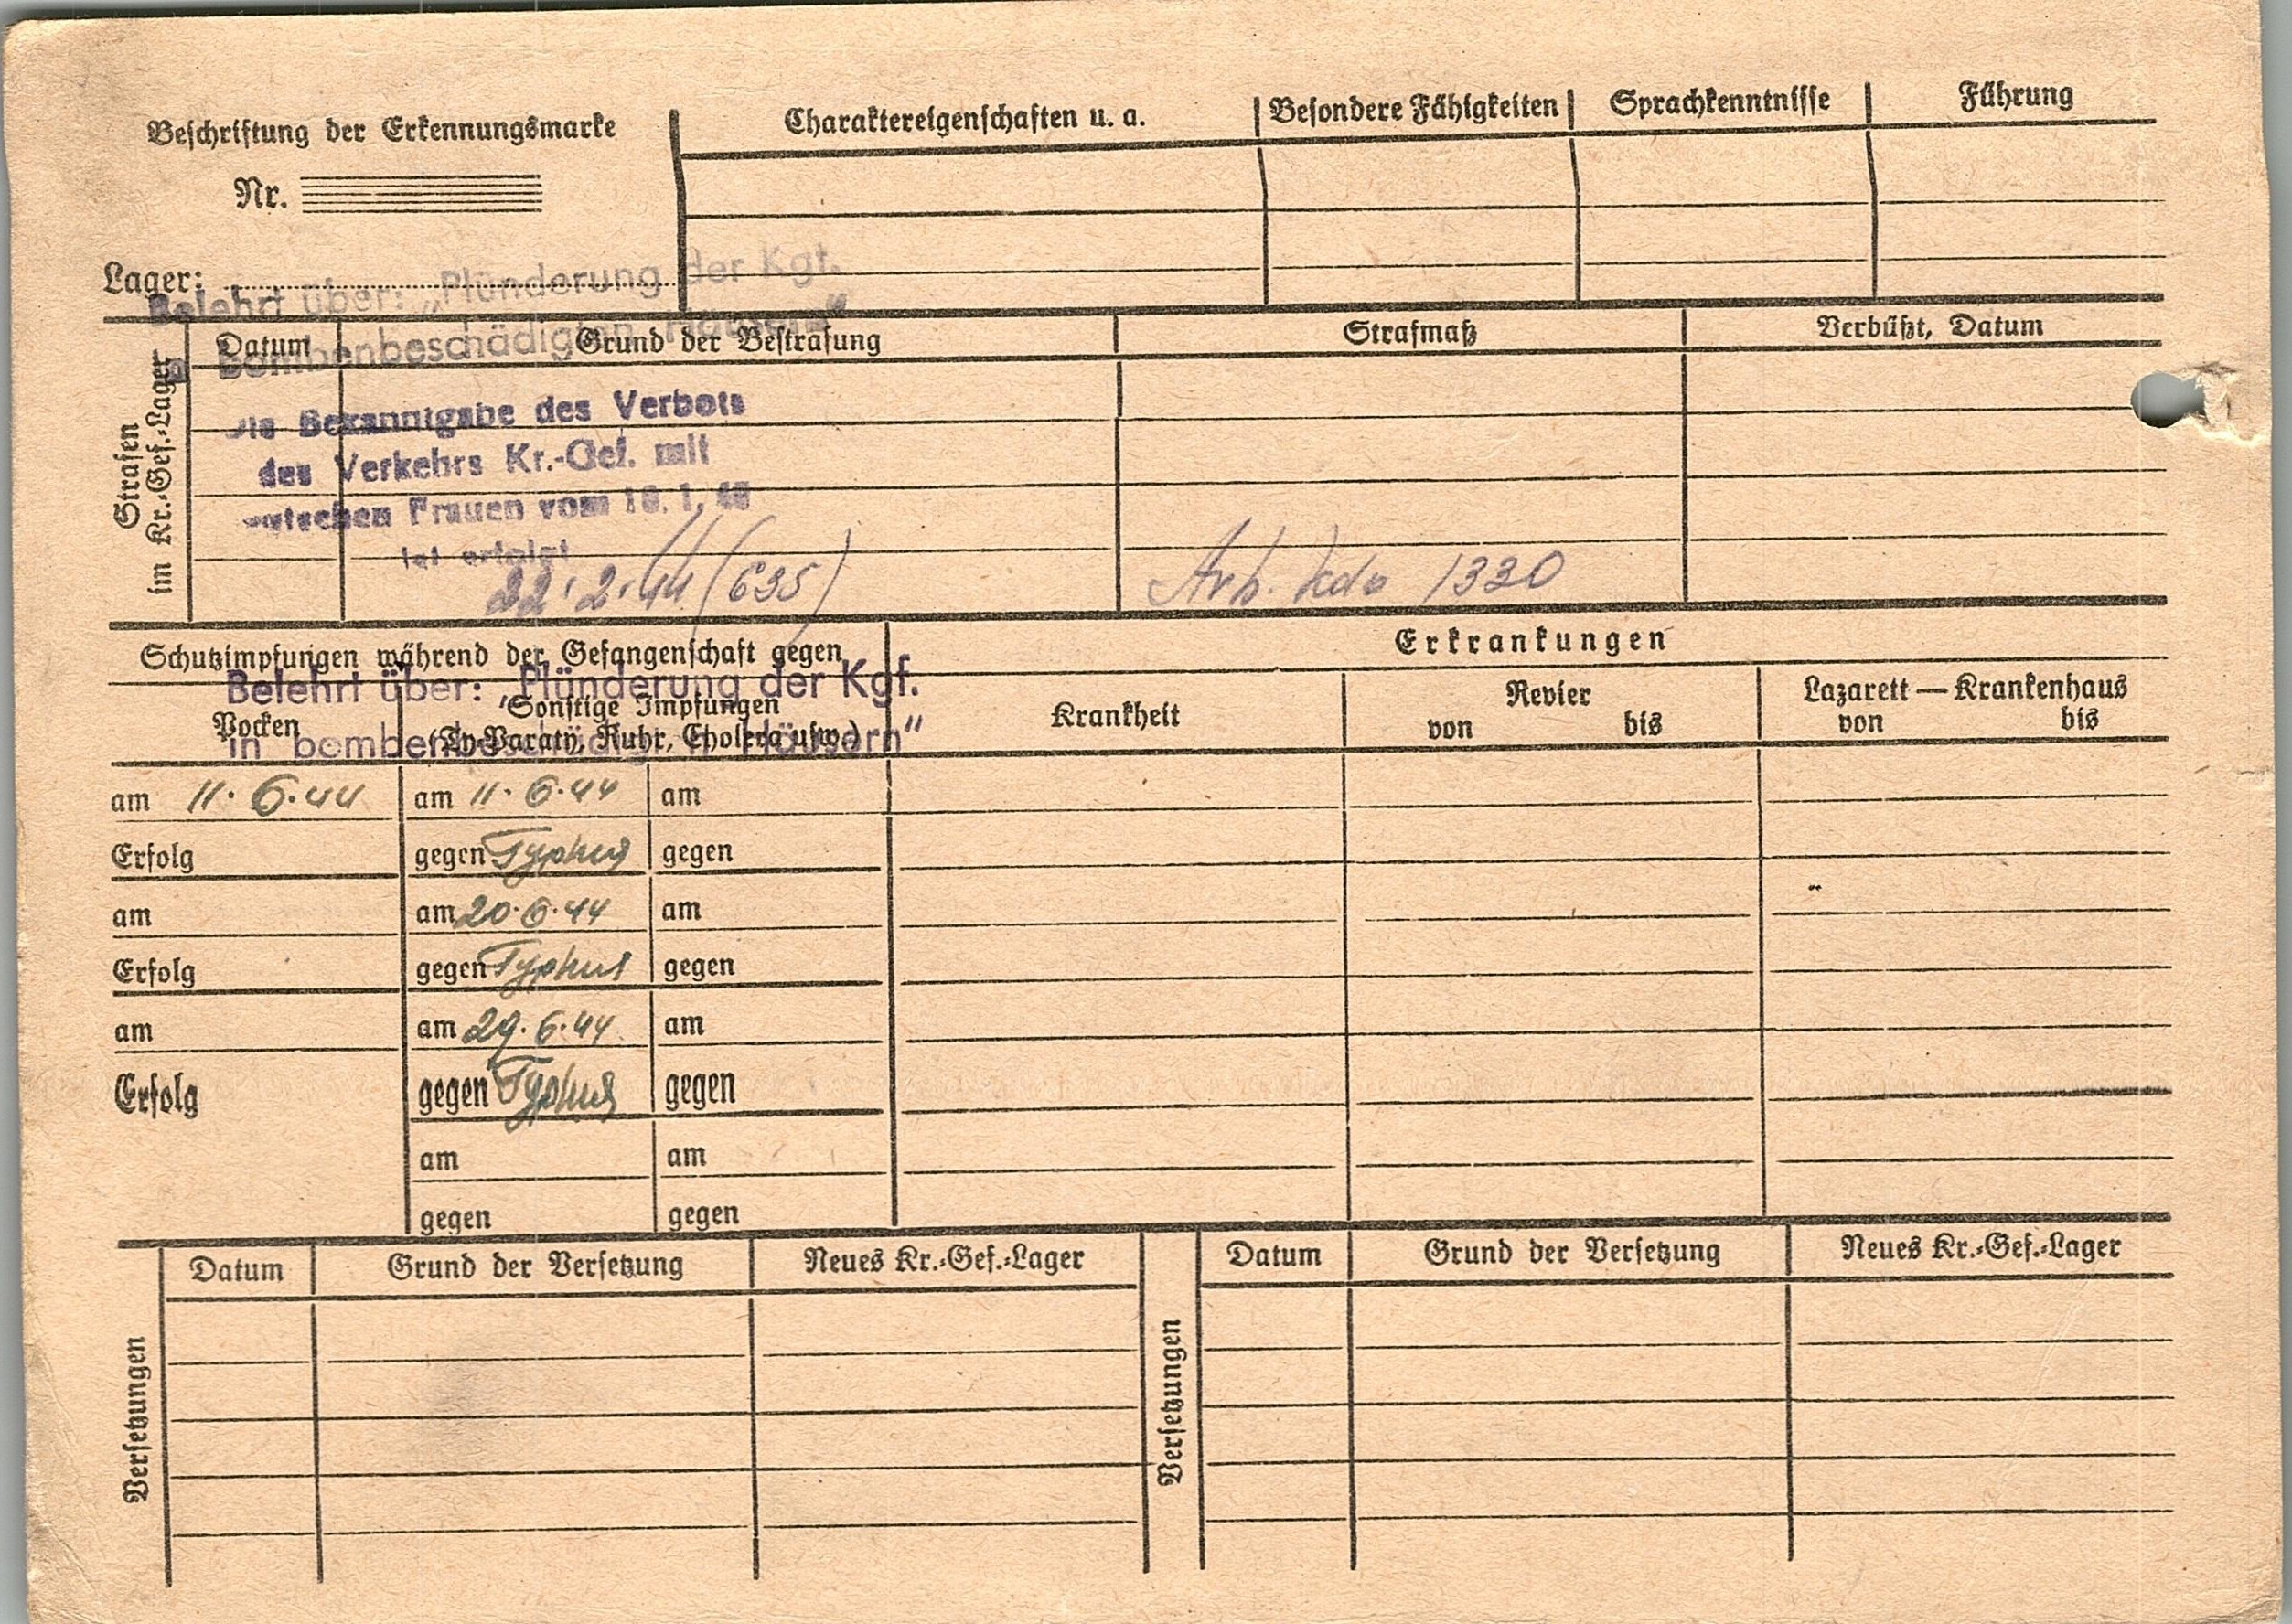 Beschriftung der Erkennungsmarke
Charaktereigenschaften u. a.
Besondere Fähigkeiten
Sprachkenntnisse
Führung
Nr.
Lager:
Belehrt über: „Plünderung der Kgf.
bombenbeschädigten Häusern“
Strafen
im Kr.-Gef.-Lager
Datum
Grund der Bestrafung
Strafmaß
Verbüßt, Datum
Bekanntgabe des Verbots
des Verkehrs Kr.-Gef. mit
Frauen vom
ist erfolgt
22.2.44 (635)
Arb. Kdo 1330
Schutzimpfungen während der Gefangenschaft gegen
Erkrankungen
Belehrt über: „Plünderung der Kgf.
in bombenbeschädigten Häusern“
Pocken
Sonstige Impfungen
(Ty-Paraty, Ruhr, Cholera usw.)
Krankheit
Revier
von bis
Lazarett — Krankenhaus
von bis
am 11.6.44 am 11.6.44 am
Erfolg gegen Typhus gegen
am am 20.6.44 am
Erfolg gegen Typhus gegen
am am 29.6.44 am
Erfolg gegen Typhus gegen
am am
gegen gegen
Versetzungen
Datum
Grund der Versetzung
Neues Kr.-Gef.-Lager
Versetzungen
Datum
Grund der Versetzung
Neues Kr.-Gef.-Lager